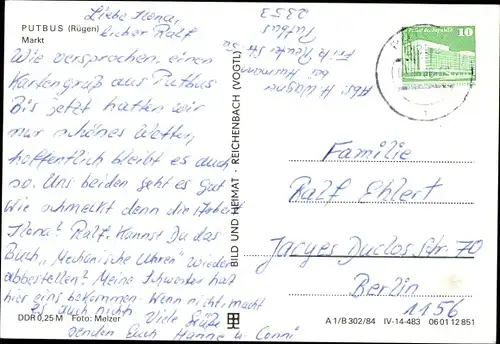 PUTBUS (Rügen)
Markt
Liebe Ilona,
lieber Ralf
Wie versprochen, einen
Kartengruß aus Putbus
Bis jetzt hatten wir
nur schönes Wetter,
hoffentlich bleibt es auch
so. Uns beiden geht es gut
Wie schmeckt denn die Arbeit
Ilona? Ralf, Kannst Du das
Buch „Mechanische Uhren" wieder
abbestellen? Meine Schwester hat
hier eins bekommen. Wenn nicht, macht
es auch nichts Viele Grüße
senden Euch Hanne u. Conni
DDR 0,25 M Foto: Melzer
BILD UND HEIMAT · REICHENBACH (VOGTL)
Abs. H. Wagner
bei
Fritz Reuter Str.
Putbus
2353
10
Familie
Ralf Ehlert
Jacques Duclos Str. 70
Berlin
1156
A 1/B 302/84 IV-14-483 06 01 12 851